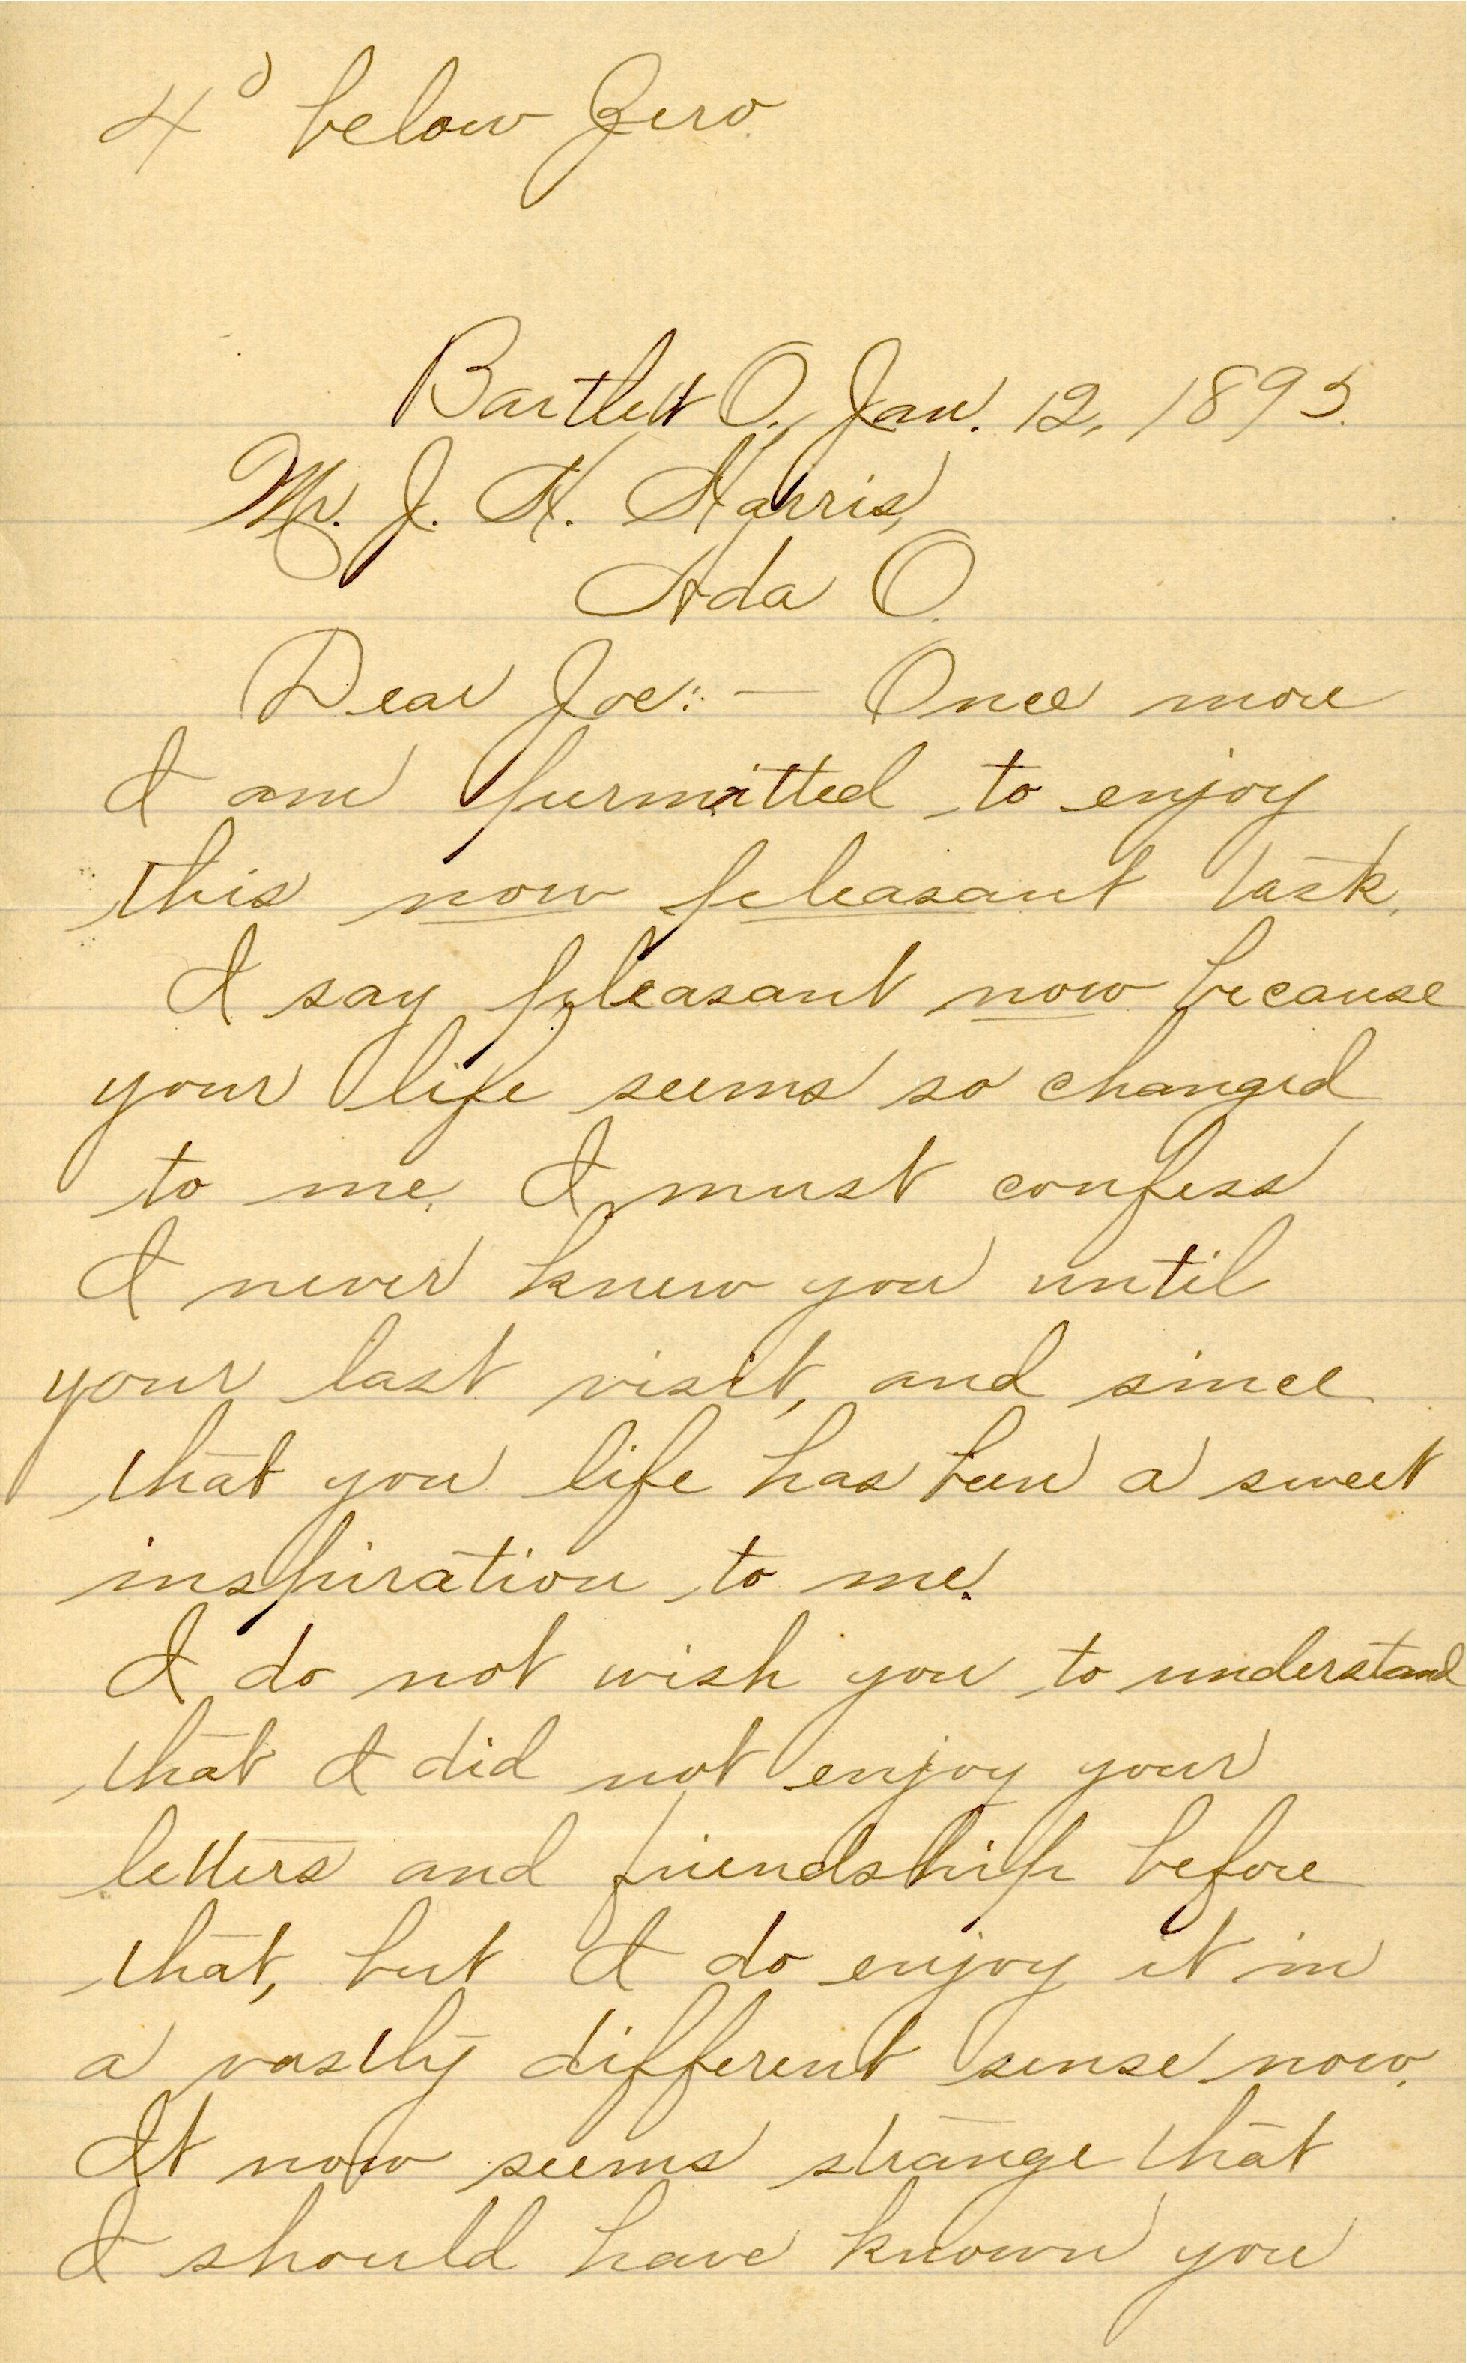 4° below Zero
Bartlett O., Jan. 12, 1895.
Mr. J. H. Harris,
Ada O.
Dear Joe:— Once more
I am permitted to enjoy
this now pleasant task.
I say pleasant now because
your life seems so changed
to me. I must confess
I never knew you until
your last visit, and since
that you life has been a sweet
inspiration to me.
I do not wish you to understand
that I did not enjoy your
letters and friendship before
that, but I do enjoy it in
a vastly different sense now.
It now seems strange that
I should have known you